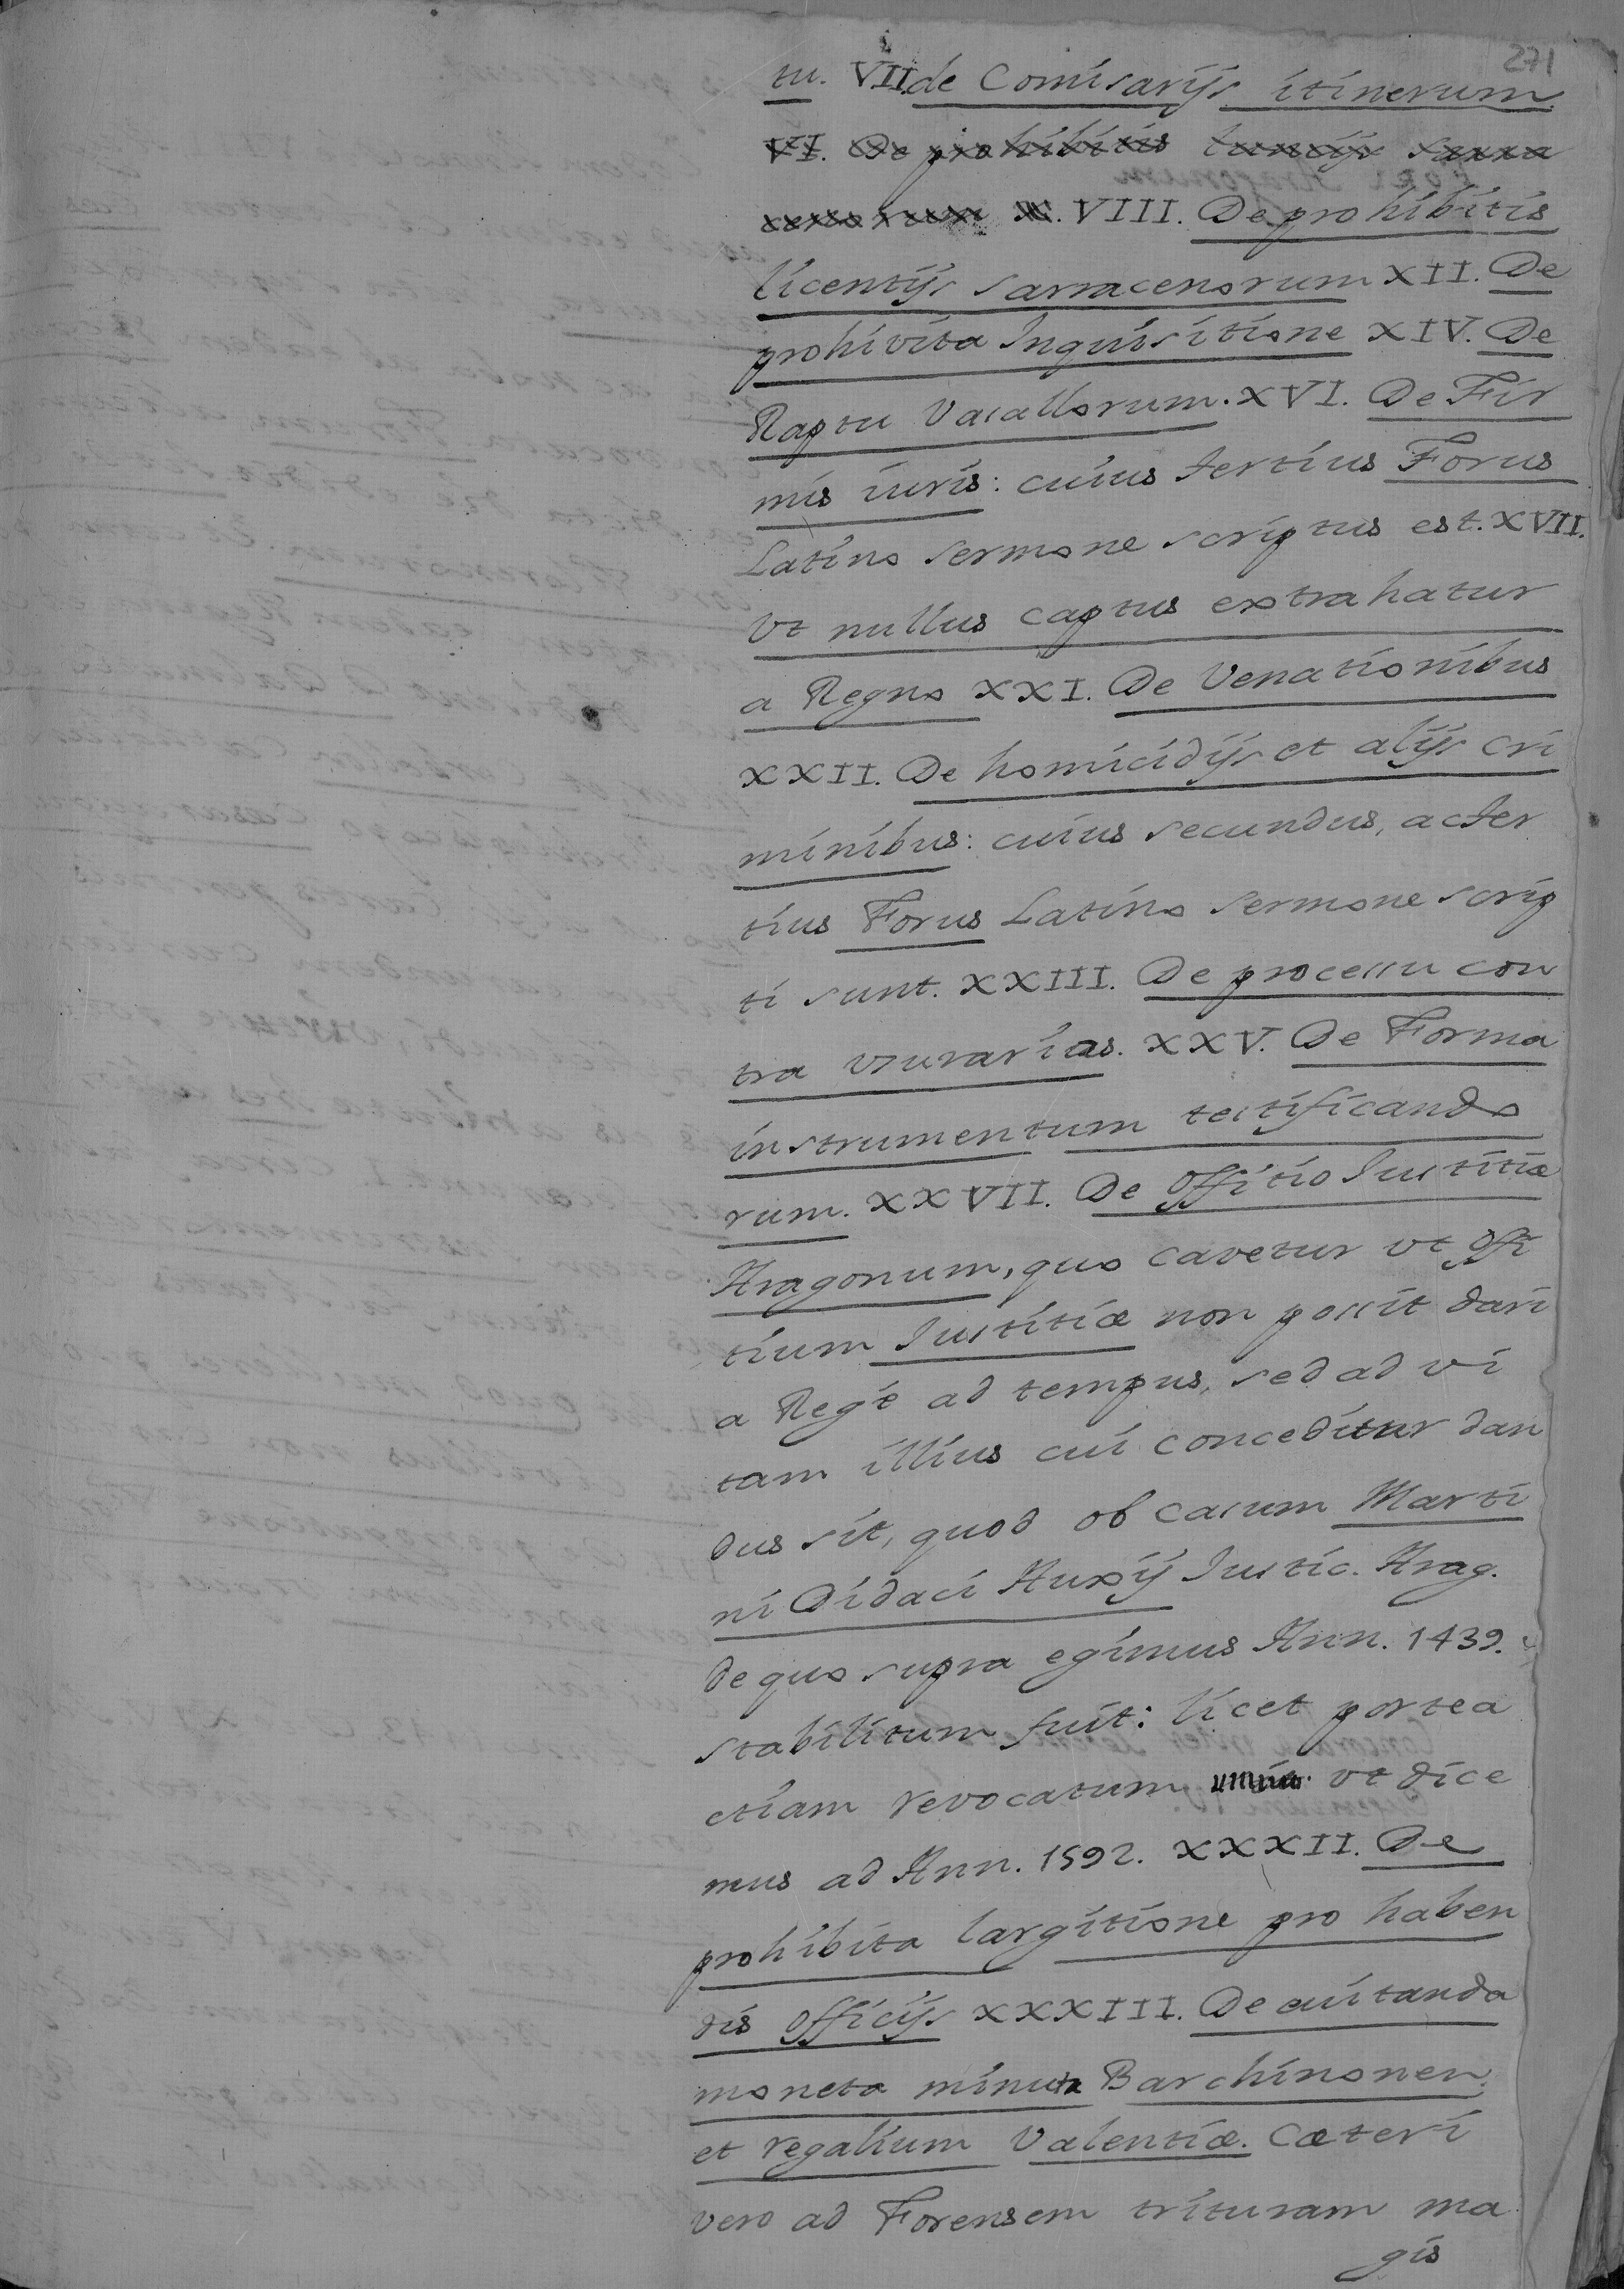 271
tu. VII. de Comisarijs itinerum.
VI. De prohibitis
VIII. De prohibitis
licentijs sarracenorum XII. De
prohivita Inquisitione XIV. De
Raptu Vasallorum. XVI. De Fir
mis iuris: cuius tertius Forus
Latino sermone scriptus est. XVII.
Vt nullus captus extrahatur
a Regno XXI. De Venationibus
XXII. De homicidijs et alijs cri
minibus: cuius secundus, ac ter
tius Forus Latino sermone scrip
ti sunt. XXIII. De processu con
tra vsurarios. XXV. De Forma
instrumentum testificando
rum. XXVII. De Offitio Iustitiæ
Aragonum, quo cavetur vt offi
tium Iustitiæ non possit dari
a Rege ad tempus, sed ad vi
tam illius cui conceditur dan
dus sit, quod ob casum Marti
ni Didaci Auxij Iustic. Arag.
de quo supra egimus Ann. 1439.
stabilitum fuit: licet postea
etiam revocatum vt dice
mus ad Ann. 1592. XXXII. De
prohibita largitione pro haben
dis officijs XXXIII. De euitanda
moneta minuta Barchinonen.
et regalium Valentiæ. Cæteri
vero ad Forensem trituram ma
gis